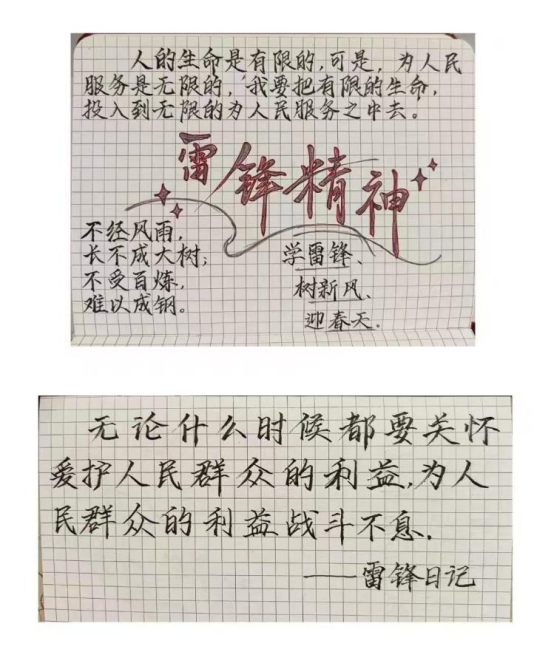 人的生命是有限的,可是,为人民
服务是无限的,我要把有限的生命,
投入到无限的为人民服务之中去。
雷锋精神
不经风雨,
长不成大树;
不受百炼,
难以成钢。
学雷锋、
树新风、
迎春天.
无论什么时候都要关怀
爱护人民群众的利益,为人
民群众的利益战斗不息.
——雷锋日记